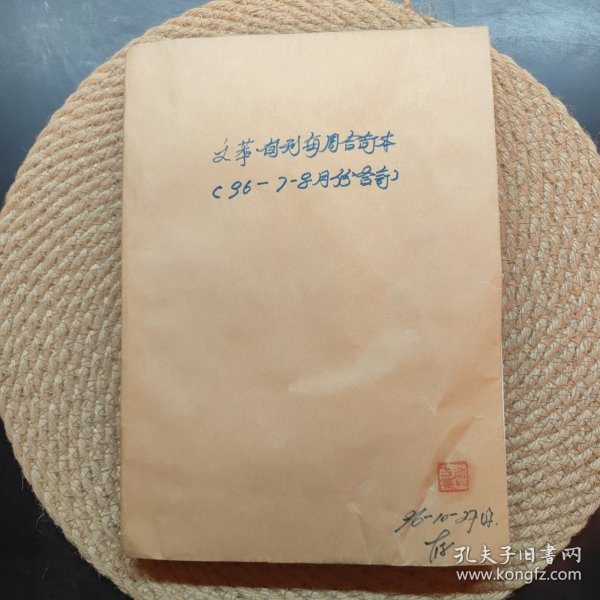 文萃·旬刊每周合订本
(96-7-8月份合订)
96-10-27日.
存
孔夫子旧书网
www.kongfz.com